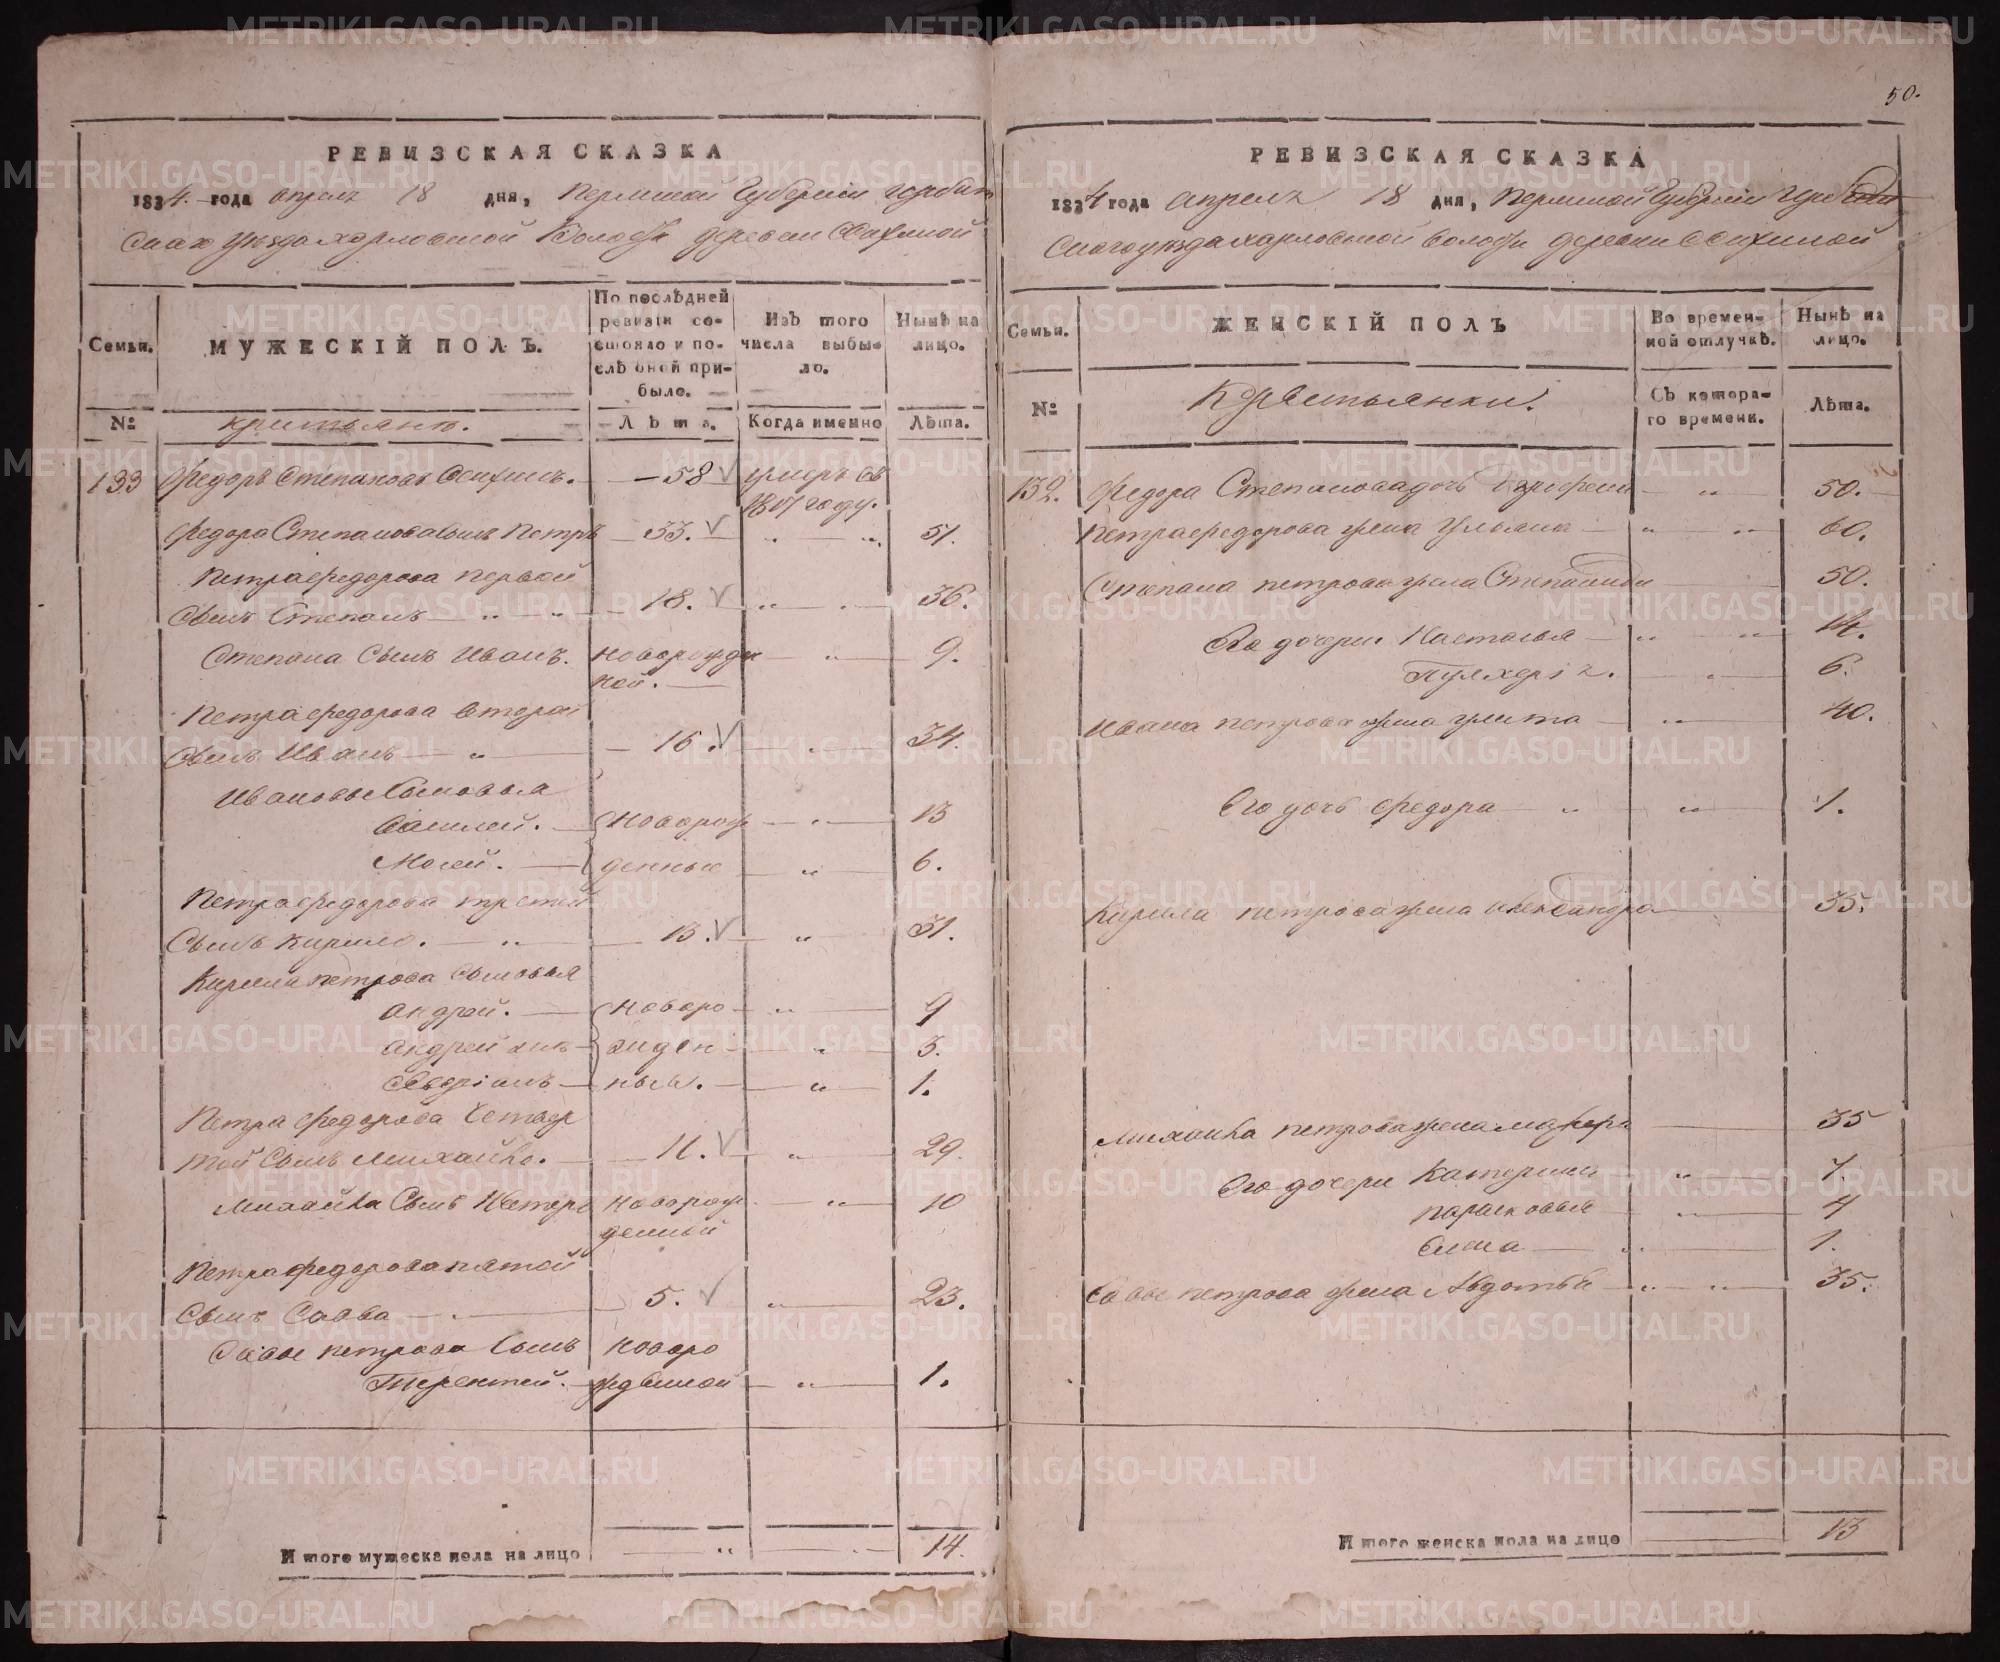 50.
РЕВИЗСКАЯ СКАЗКА
1834 года апреля 18 дня, Пермской Губернии Ирбит
скаго уезда харловской Волости деревни
Семьи.
МУЖЕСКІЙ ПОЛЪ.
По послѣдней ревизіи состояло и послѣ оной прибыло.
Изъ того числа выбыло.
Нынѣ на лицо.
№
крестьяне.
Лѣта.
Когда именно
Лѣта.
133 Федоръ Степановъ — 58 умеръ въ
году.
Федора Степанова сынъ Петръ — 33. 51.
Петра Федорова первой
сынъ Степанъ 18. 36.
Степана сынъ Иванъ. новорожде 9.
ной.
Петра Федорова второй
сынъ Иванъ 16. 34.
Ивановы сыновья
Василей. новорож 13
Мосей. денные 6.
Петра Федорова третей
сынъ Кирило. 13. 31.
Кирила петрова сыновья
Андрей. новоро 9
Андрей жъ жден 3.
ныя. 1.
Петра Федорова четвер
той сынъ Михайло. 11. 29.
Михайла сынъ новорож 10
денной
Петра Федорова пятой
сынъ Савва 5. 23.
Савы петрова сынъ новоро
Терентей. жденной 1.
Итого мужеска пола на лицо 14.
РЕВИЗСКАЯ СКАЗКА
1834 года апреля 18 дня, Пермской Губернии Ирбит
скаго уезда харловской волости деревни
Семьи.
ЖЕНСКІЙ ПОЛЪ
Во временной отлучкѣ.
Нынѣ на лицо.
№
Крестьянки.
Съ котораго времени.
Лѣта.
132. Федора Степанова дочь 50.
Петра Федорова жена Ульяна 60.
Степана петрова жена Степанида 50.
Его дочери Настасья 14.
Пулхерія. 6.
Ивана петрова жена улита 40.
Его дочь Федора 1.
Кирила петрова жена Александра 35.
Михаила петрова жена 35
Его дочери Катерина 7.
парасковья 4
Елена 1.
Савы петрова жена Авдотья 35.
Итого женска пола на лицо 13
METRIKI.GASO-URAL.RU